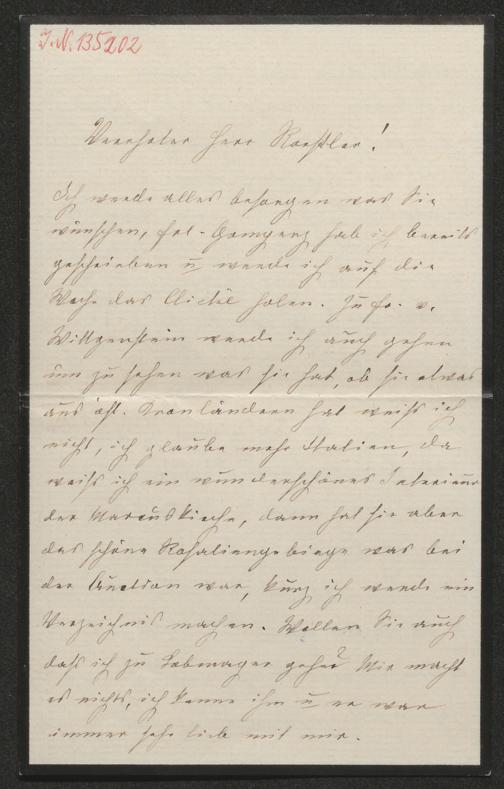 J.N. 135202
Verehrter Herr Roessler!
Ich werde alles besorgen was Sie
wünschen, Frl. hab ich bereits
geschrieben u werde ich auf die
Woche das holen. Zu Fr. v.
Wittgenstein werde ich auch gehen
um zu sehen was sie hat, ob sie etwas
aus öst. Kronländern hat weiß ich
nicht, ich glaube mehr Italien, da
weiß ich ein wunderschönes Interieur
der Marcuskirche, dann hat sie aber
das schöne Rosaliengebirge was bei
der Auction war, kurz ich werde ein
Verzeichnis machen. Wollen Sie auch
daß ich zu Lobmayer gehe? Mir macht
es nichts, ich kenne ihm u er war
immer sehr lieb mit mir.